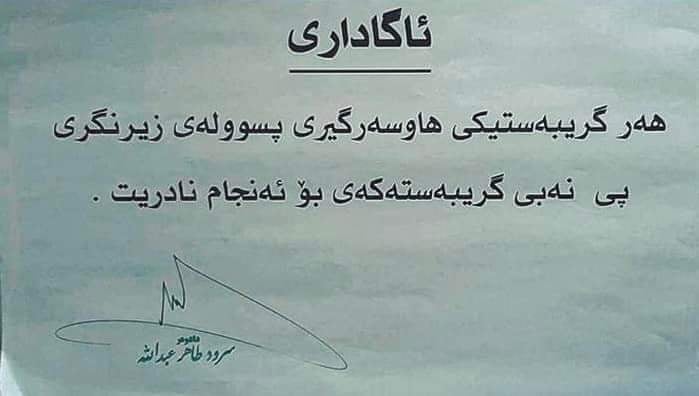 ئاگاداری
هەر گریبەستیکی هاوسەرگیری پسوولەی زیرنگری
پی نەبی گریبەستەکەی بۆ ئەنجام نادریت .
سرود طاهر عبدالله